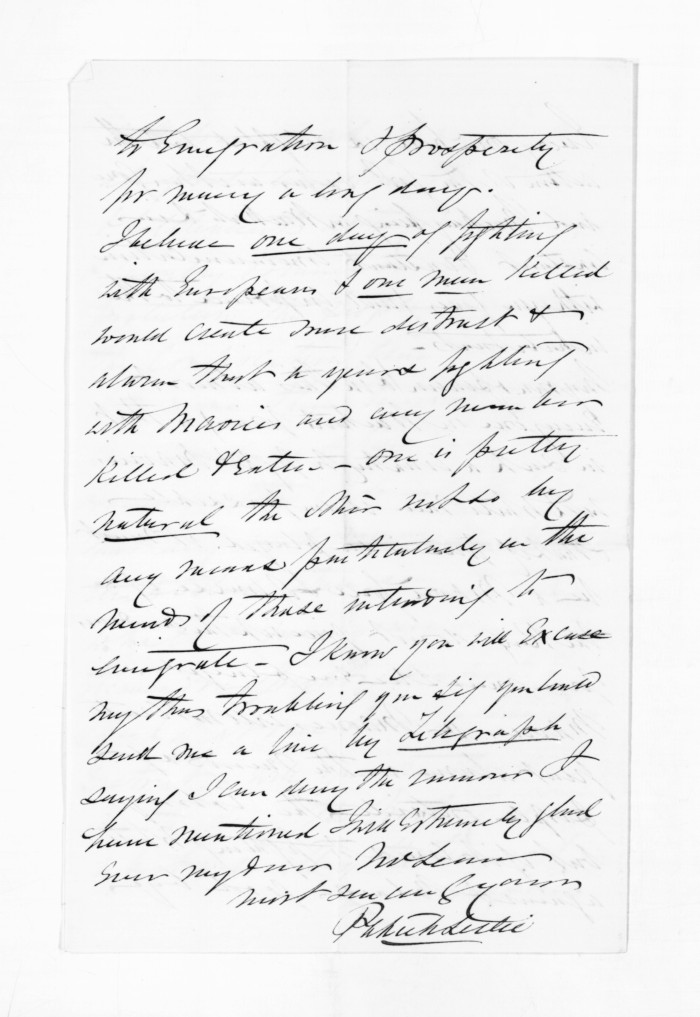 to Emigration & Prosperity
for many a long day.
I believe one day of fighting
with Europeans & one man Killed
would create more distrust &
alarm that a years fighting
with Maories and any number
Killed & Eaten - one is pretty
natural the other not so by
any means particularly in the
minds of those intending to
emigrate - I know you will Excuse
my thus troubling you & if you could
send me a line by Telegraph
saying I can deny the rumour I
have mentioned I will Extremely glad
Ever my dear McLean
most sincerely yours
Patrick Leslie